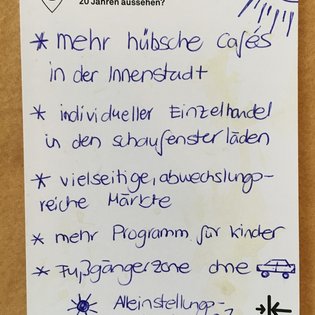 20 Jahren aussehen?
* mehr hübsche Cafés
in der Innenstadt
* individueller Einzelhandel
in den Schaufensterläden
* vielseitige, abwechslungs-
reiche Märkte
* mehr Programm für Kinder
* Fußgängerzone ohne
Alleinstellungs-